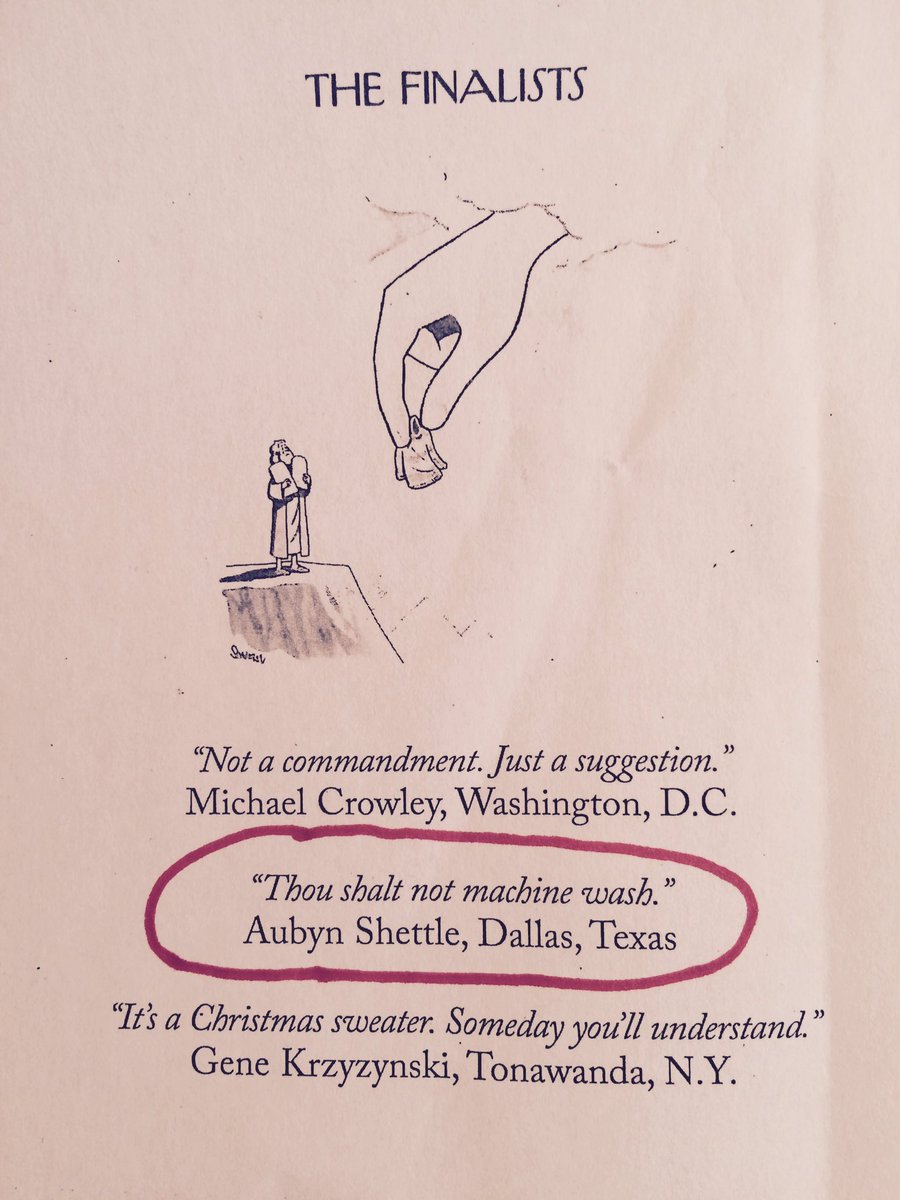 THE FINALISTS
“Not a commandment. Just a suggestion.”
Michael Crowley, Washington, D.C.
“Thou shalt not machine wash.”
Aubyn Shettle, Dallas, Texas
“It’s a Christmas sweater. Someday you’ll understand.”
Gene Krzyzynski, Tonawanda, N.Y.